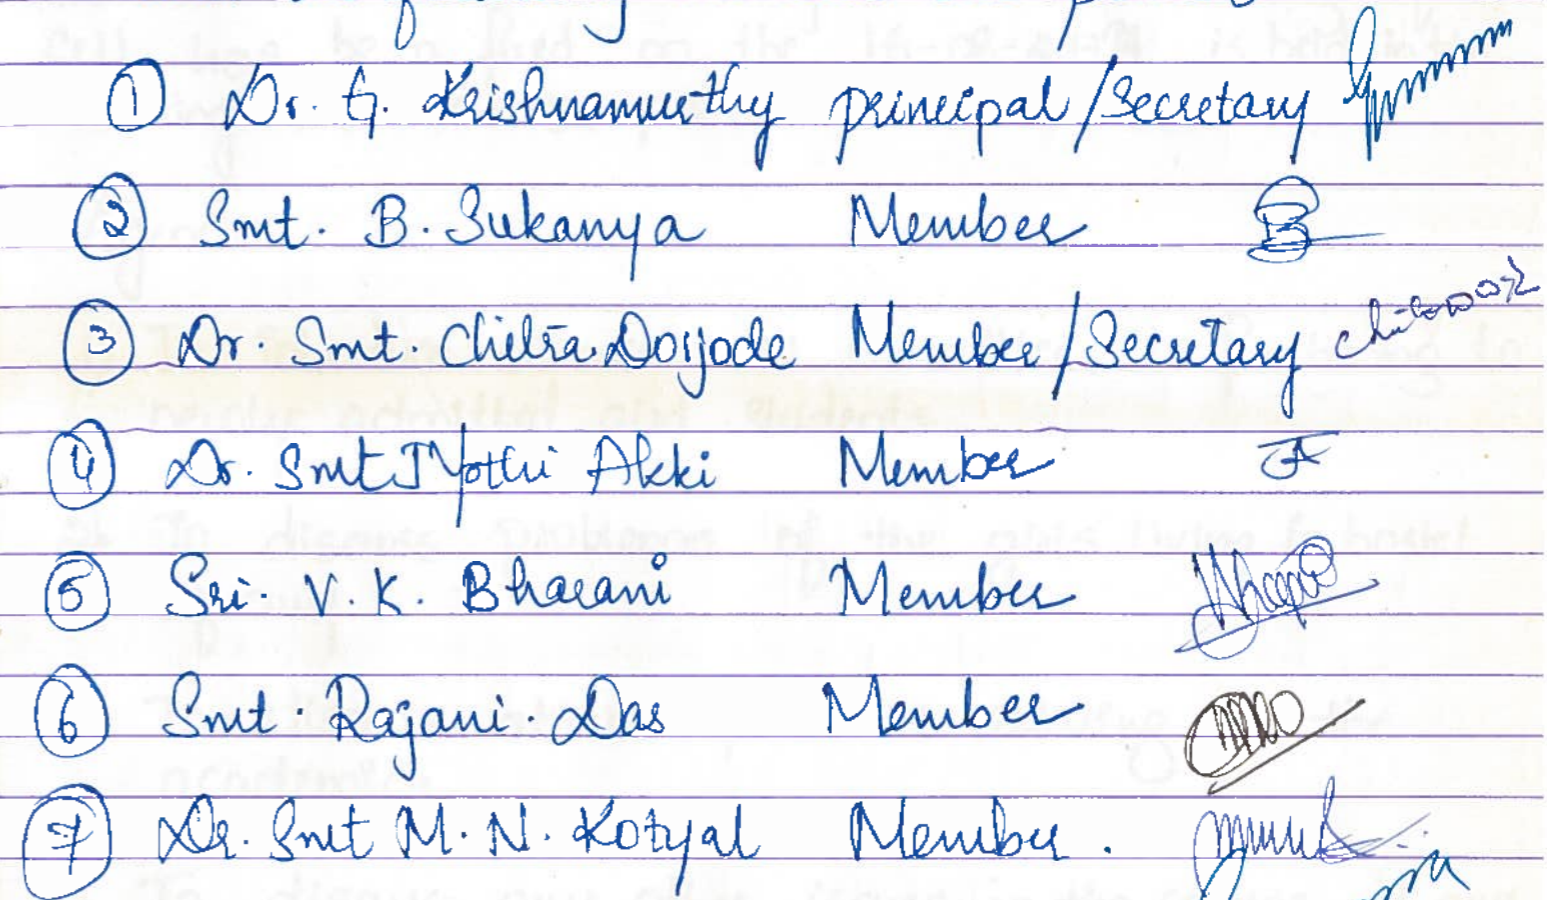 ① Dr. G. Krishnamurthy principal/Secretary
② Smt. B. Sukanya Member
③ Dr. Smt. Chitra Dorjode Member/Secretary
④ Dr. Smt Jyothi Akki Member
⑤ Sri. V. K. Bharani Member
⑥ Smt. Rajani. Das Member
⑦ Dr. Smt M. N. Kotyal Member.